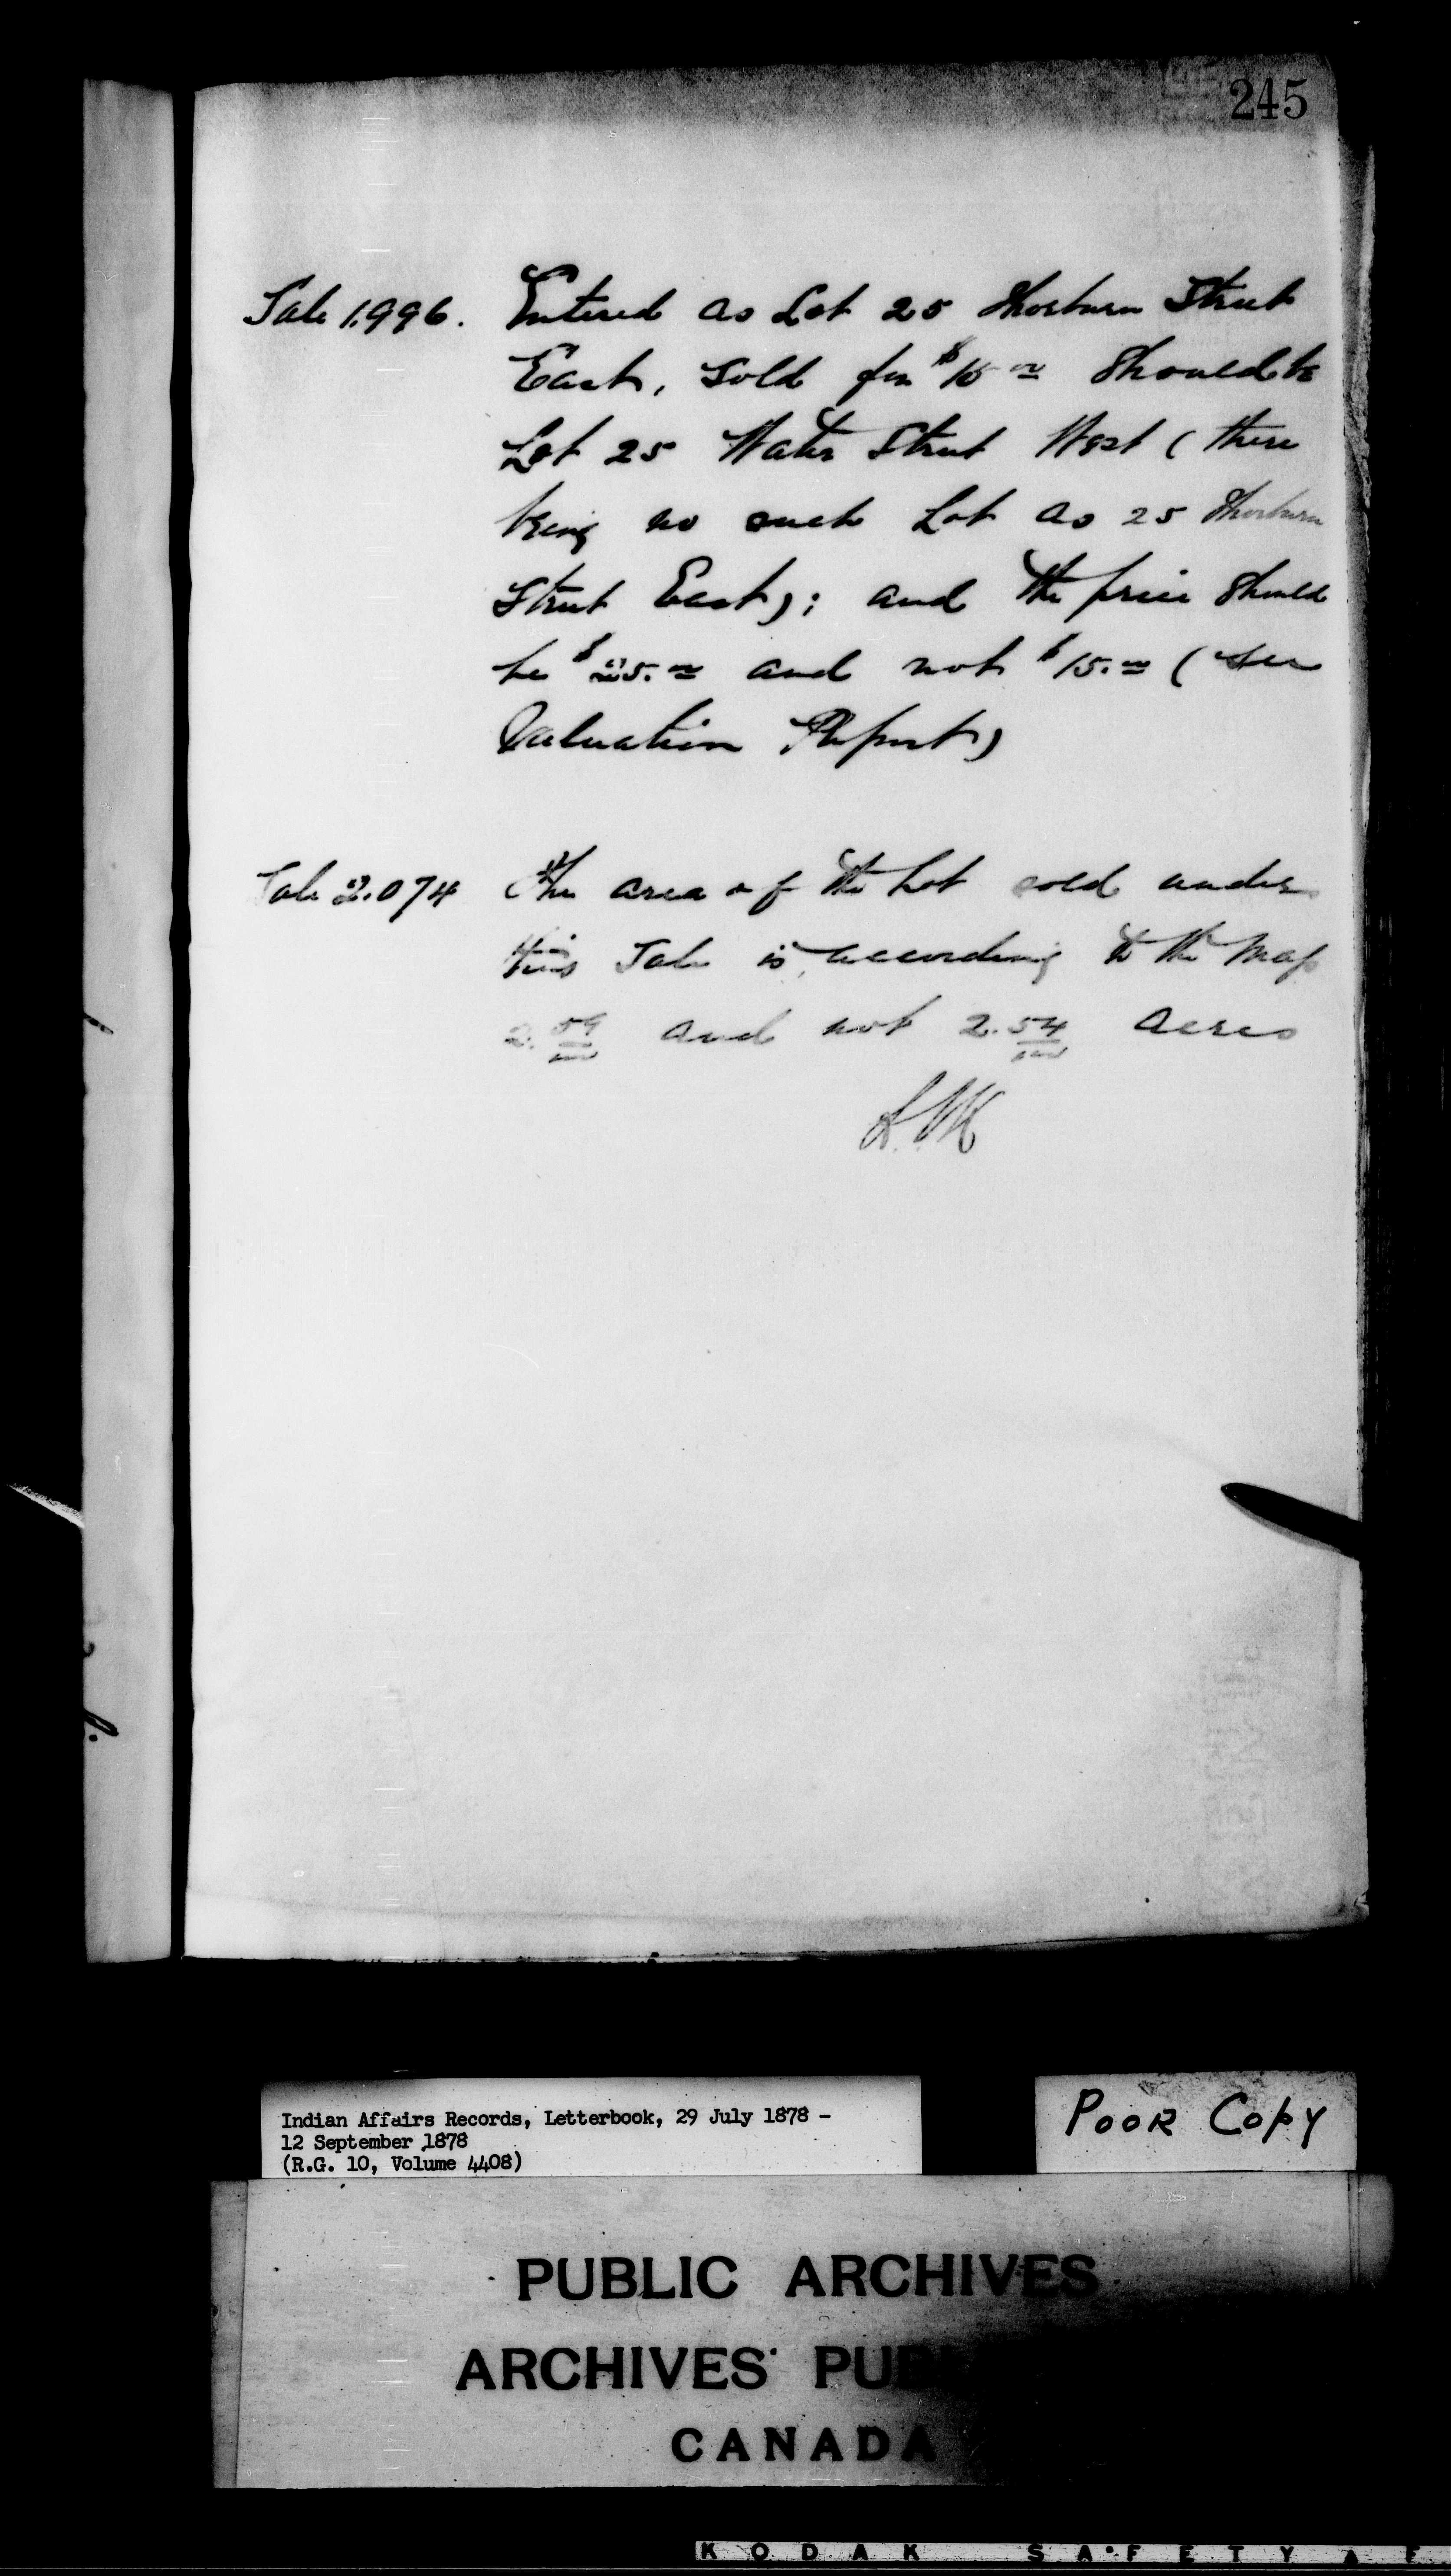 245
Sale 1.996. Entered as Lot 25 Thorburn Street
East, sold for $15.00 should be
Lot 25 Water Street West (there
being no such Lot as 25 Thorburn
Street East); and the price should
be $25.00 and not $15.00 (see
Valuation Report)
Sale 2.074 The area of the Lot sold under
this Sale is, according to the Map
2. 59/100 and not 2. 54/100 acres
Indian Affairs Records, Letterbook, 29 July 1878 -
12 September 1878
(R.G. 10, Volume 4408)
POOR COPY
PUBLIC ARCHIVES
ARCHIVES PUB
CANADA
KODAK SAFETY